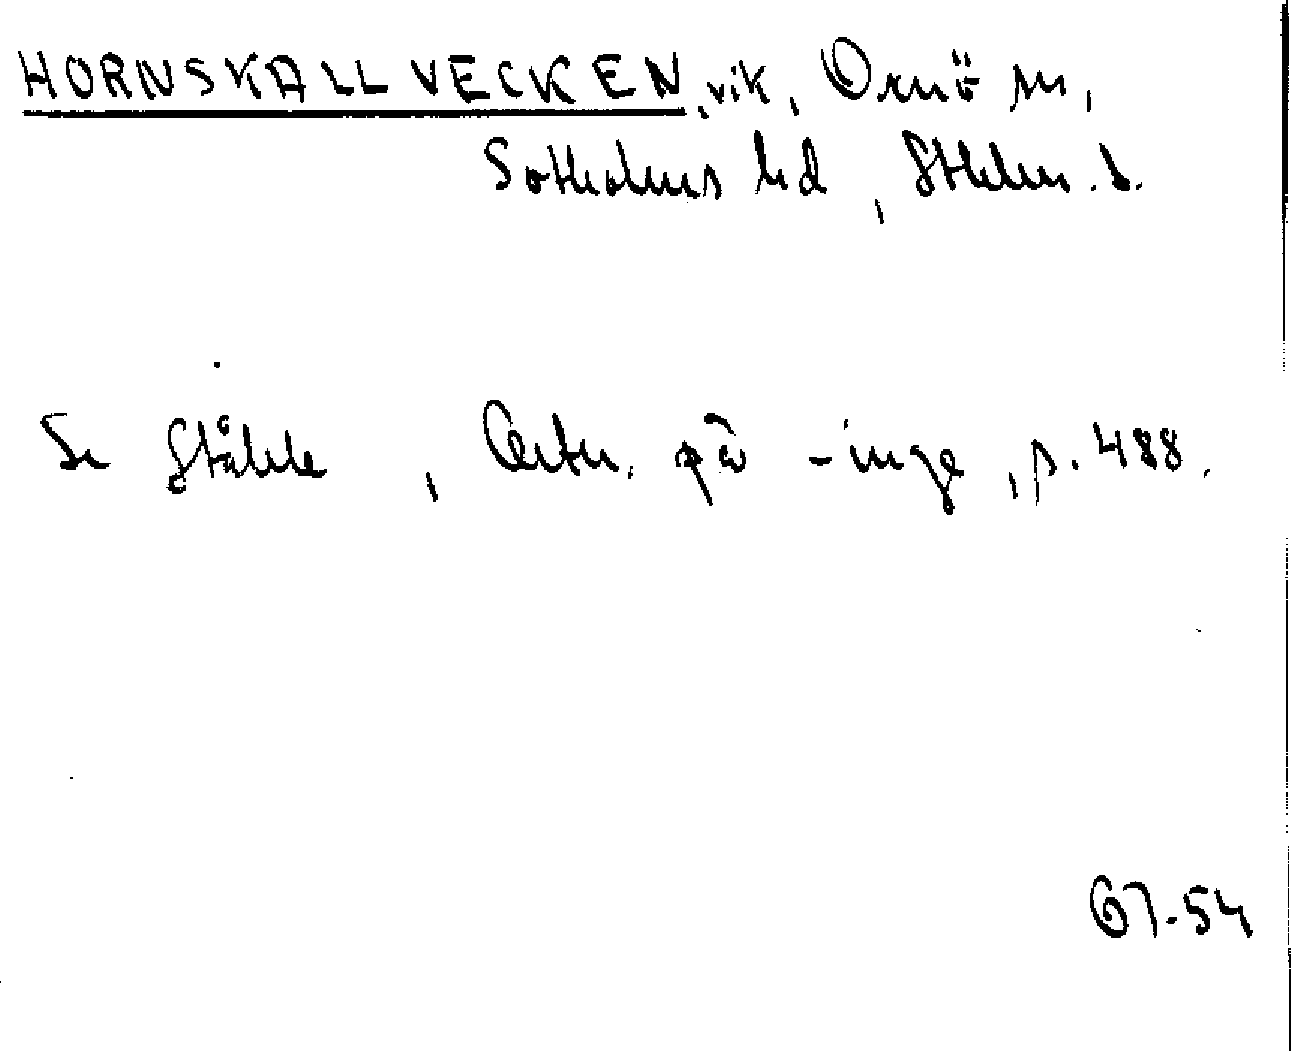 HORNSKALLVECKEN, vik, Ornö sn,
Sotholms hd, Sthlms. l.
Se Ståhle, Ortn. på -inge, s. 488.
67-54